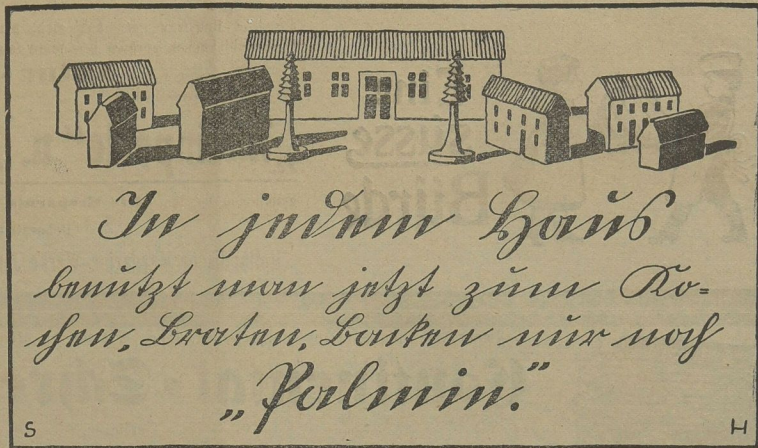 In jedem Haus
benutzt man jetzt zum Ko=
chen, Braten, Backen nur noch
„Palmin.“
S H